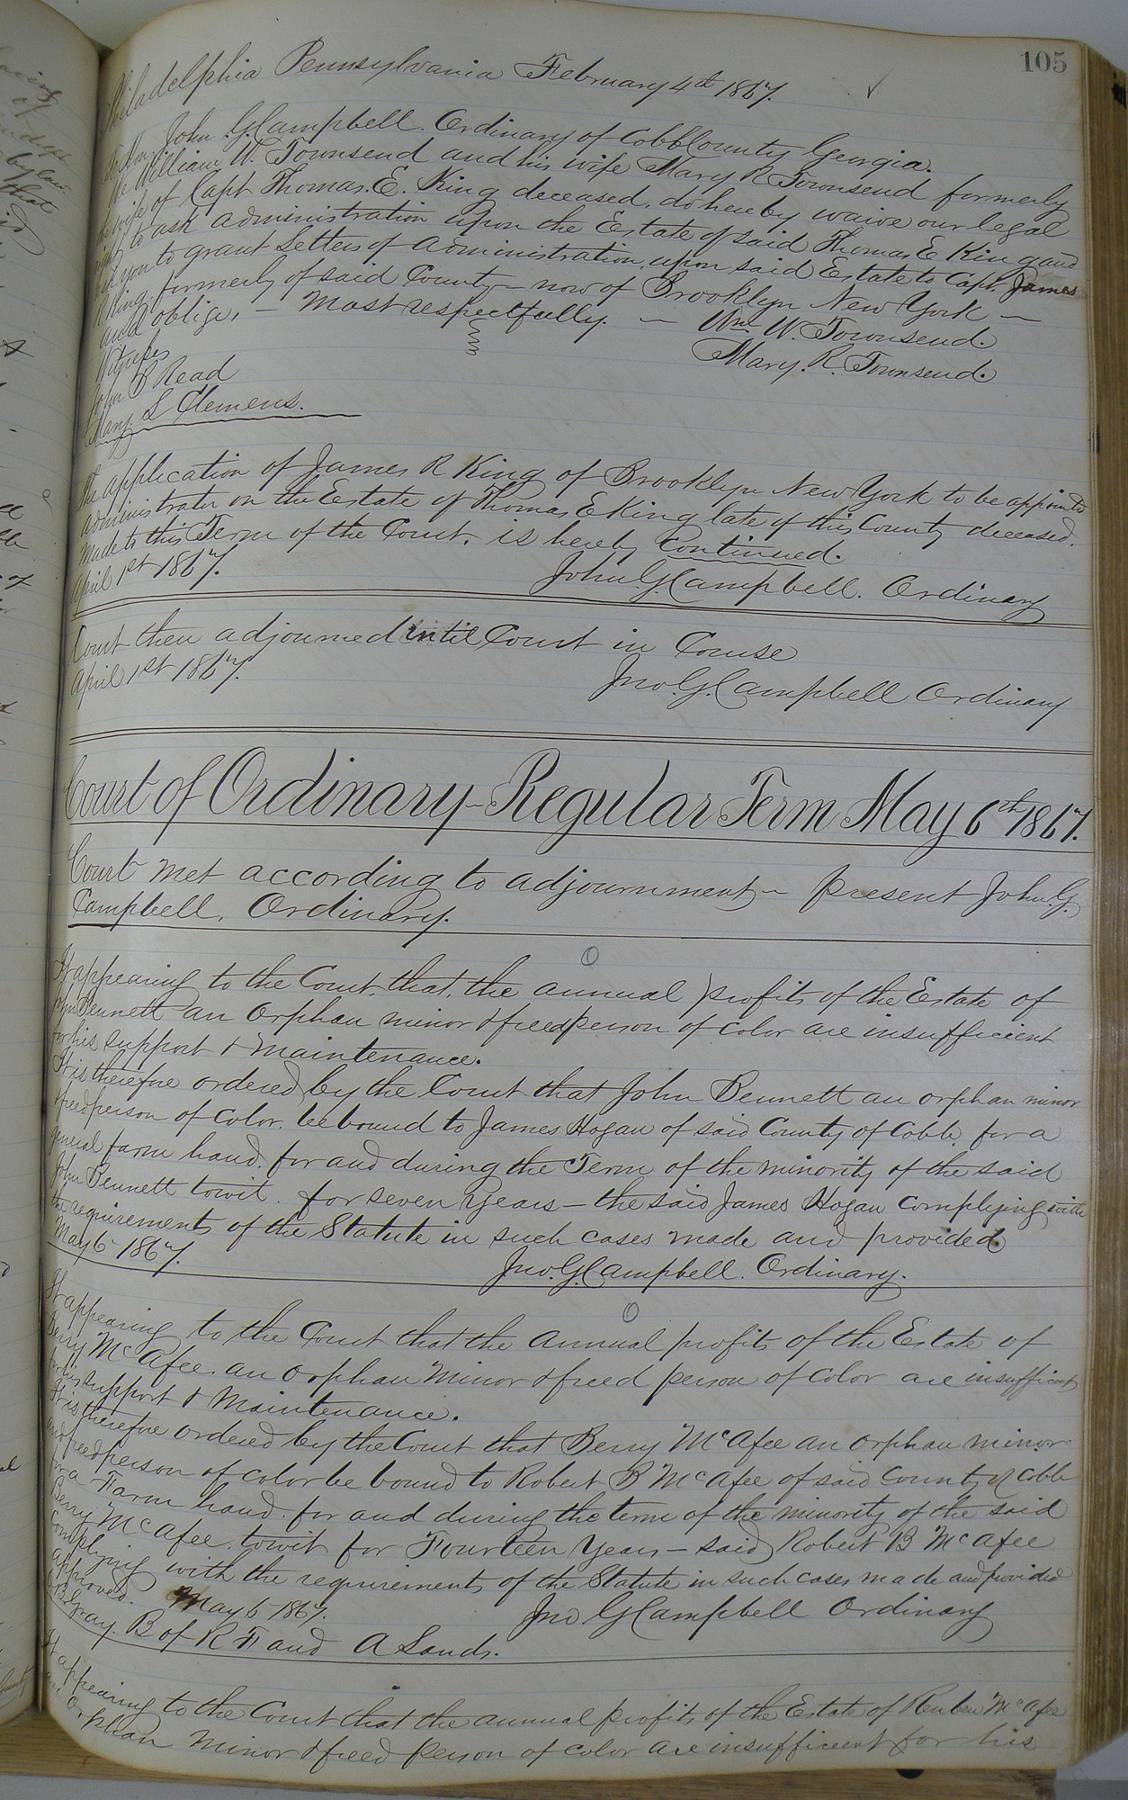 105
Philadelphia Pennsylvania February 4th 1867.
To Hon. John G. Campbell. Ordinary of Cobb County Georgia.
We William W. Townsend and his wife Mary R Townsend formerly
wife of Capt Thomas. E. King deceased, do hereby waive our legal
right to ask administration upon the Estate of said Thomas E King and
ask you to grant Letters of Administration, upon said Estate to Capt. James
R King. formerly of said County - now of Brooklyn New York -
and oblige, - Most respectfully. - Wm. W. Townsend.
Witness Mary. R. Townsend.
John B Read
Mary. L Clemens.
The application of James R King of Brooklyn New York to be appointed
administrator on the Estate of Thomas E King late of this County deceased.
Made to this Term of the Court. is hereby Continued.
April 1st 1867. John G. Campbell. Ordinary
Court then adjourned until Court in Course
April 1st 1867. Jno. G. Campbell Ordinary
Court of Ordinary - Regular Term May 6th 1867.
Court met according to adjournment - present John. G.
Campbell, Ordinary.
It appearing to the Court. that, the annual profits of the Estate of
John Bennett an Orphan minor & freed person of color are insufficient
for his support & maintenance.
It is therefore ordered by the Court that John Bennett an orphan minor
& freed person of color. be bound to James Hogan of said County of Cobb. for a
general farm hand. for and during the Term of the minority of the said
John Bennett towit. for seven Years - the said James Hogan complying with
the requirements of the Statute in such cases made and provided.
May 6 1867. Jno. G. Campbell. Ordinary.
It appearing to the Court that the annual profits of the Estate of
Berry McAfee. an Orphan Minor & freed person of color are insufficient
for his support & Maintenance.
It is therefore ordered by the Court that Berry McAfee an orphan minor
and freed person of color be bound to Robert B McAfee of said County of Cobb
for a Farm hand. for and during the term of the minority of the said
Berry McAfee. towit for Fourteen Years - said Robert B McAfee
complying with the requirements of the Statute in such cases made and provided
approved. May 6 1867. Jno G Campbell Ordinary
Gray. B of R F and A Lands.
It appearing to the Court that the annual profits of the Estate of Reuben McAfee
an Orphan Minor & freed person of color are insufficient for his